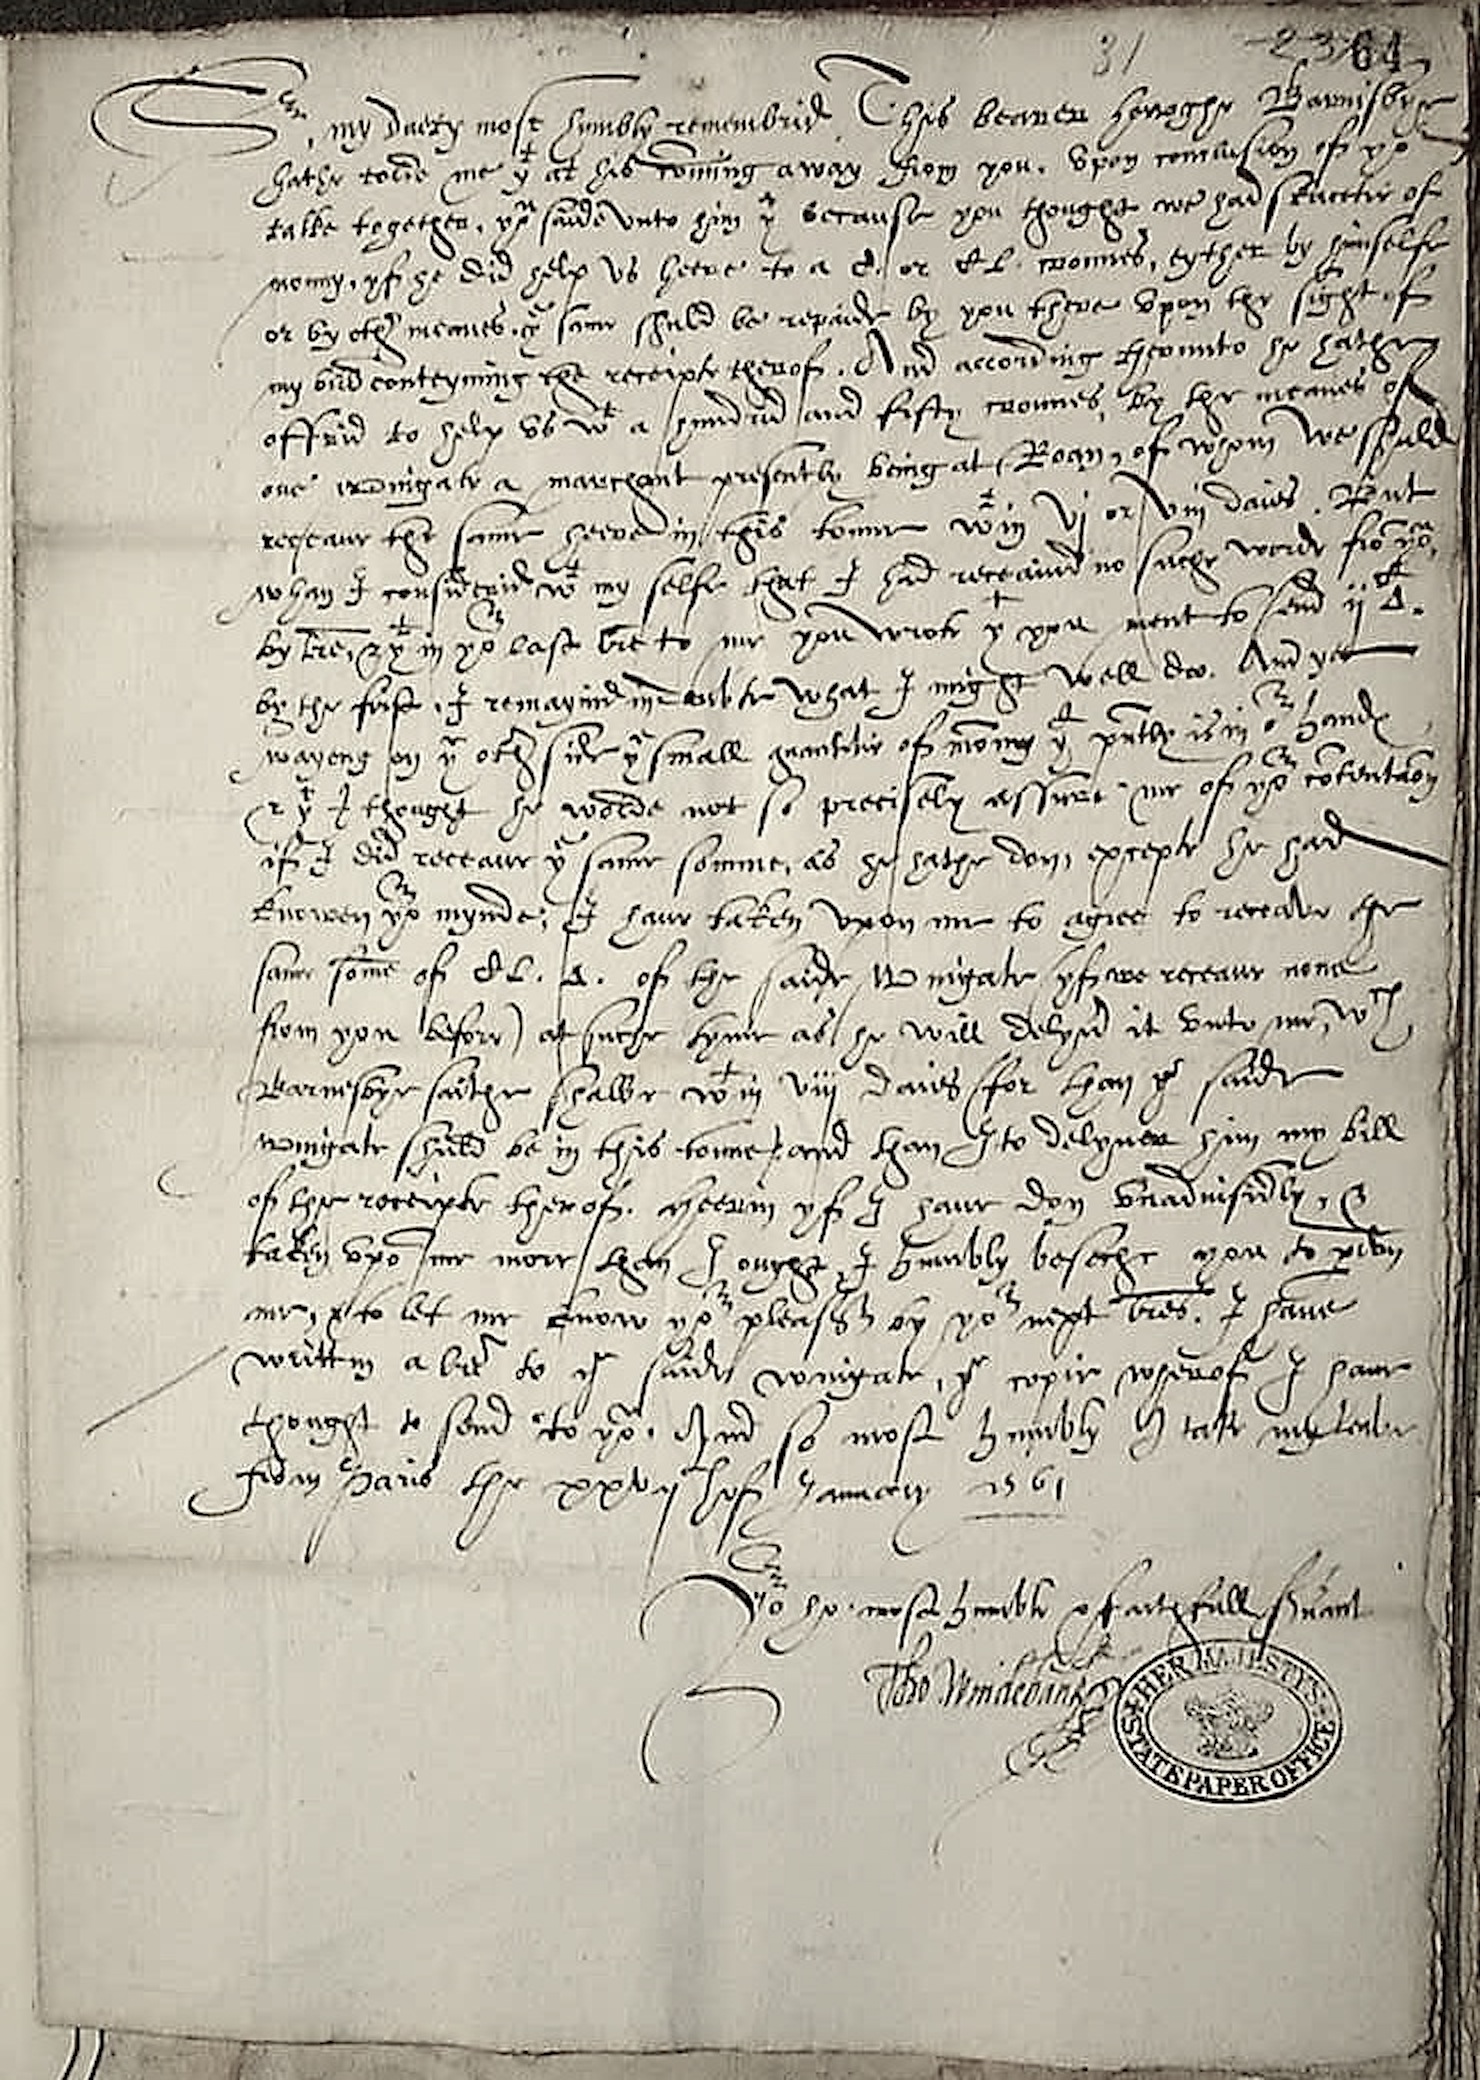 31 23 64
Sr, my duety most humbly remembrid. This bearer Barnisbye
hathe tolde me yt at his coming away from you, vpon conclusion of yor
talke together, you saide vnto him yt because you thought we had scarcitie of
mony, yf he did help vs heere to a C. or CL. crownes, eyther by himselfe
or by other meanes, ye same shuld be repaide by you there vpon the sight of
my bill conteyning the receipte therof. And according herevnto he hathe
offrid to help vs wt a hundrid and fifty crownes, by the meanes of
one Wingate a marchant presently being at Roan, of whom we shuld
receaue the same heere in this towne wtin vj or viij daies. But
whan I considerid wt my selfe that I had receauid no suche worde from you,
by lre, & yt in yor last lre to me you wrote yt you ment to send ij C.
by the first, I remaynid in doubte what I might well do. And yet
wayeng on ye other side ye small quantitie of mony yt pntly is in or handes,
& yt I thought he wolde not so precisely assure me of yor contentacon
if I did receaue ye same somme, as he hathe don, excepte he had
knowen yor mynde; I haue taken vpon me to agree to receaue the
same some of CL. of the saide Wingate (yf we receaue none
from you before) at suche tyme as he will delyuer it vnto me, wch
Barnesbye saithe shalbe wtin viij daies (for than ye saide
Wingate shuld be in this towne) and than I to delyuer him my bill
of the receipte therof. Heerin yf I haue don vnaduisidly, &
taken vpon me more then I ought, I humbly beseche you to pdon
me, & to let me know yor pleassr by yor next lres. I haue
written a lre to ye saide Wingate, ye copie wherof I haue
thought to send to you. And so most humbly I take my leaue
From Paris the xxvijth of January 1561
Yor ho. most humble & faithfull seruant
Tho Windebank
HER MAJESTY'S STATE PAPER OFFICE